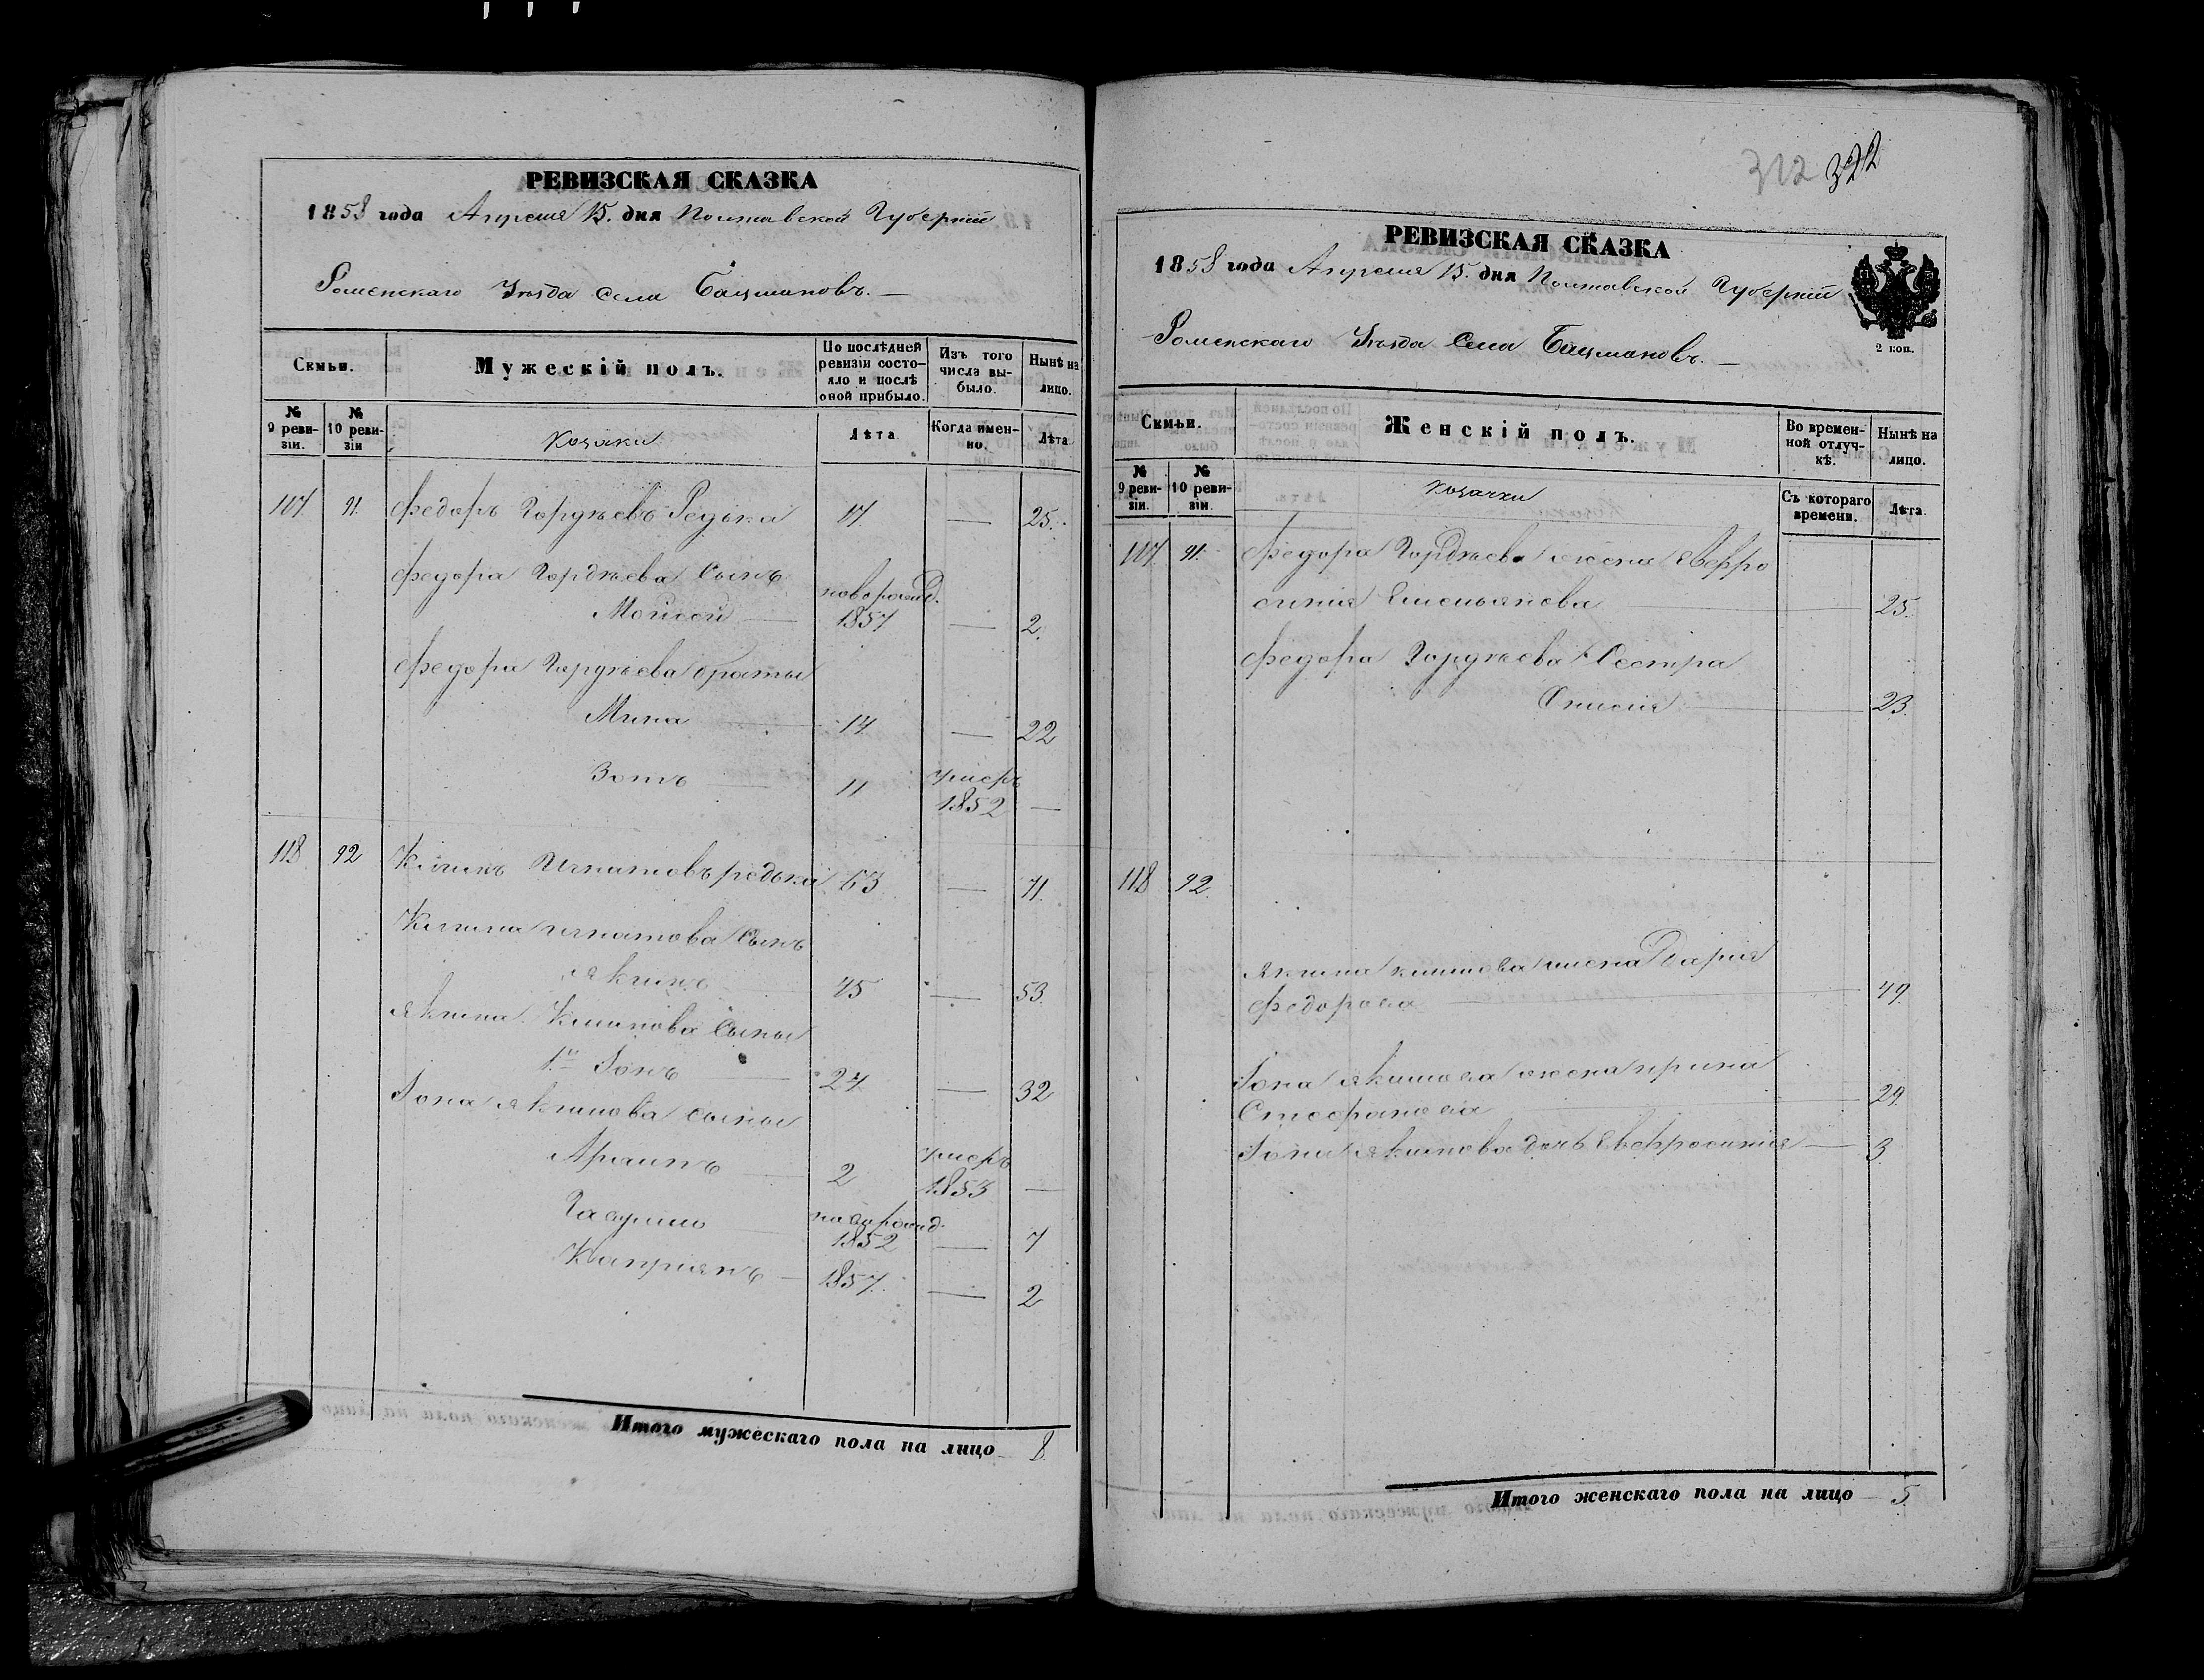 РЕВИЗСКАЯ СКАЗКА
1858 года Апреля 15. дня Полтавской Губерніи
Роменскаго Уезда Села Бацмановъ.
Семьи.
Мужескій полъ.
По послѣдней ревизіи состояло и послѣ оной прибыло.
Изъ того числа выбыло.
Нынѣ на лицо.
№ 9 ревизіи.
№ 10 ревизіи
Козаки
Лѣта
Когда именно.
Лѣта
107. 91. Федоръ Гордѣевъ Редька 17. — 25.
Федора Гордѣева Сынъ
Мойсей — новорожд. 1857. — 2.
Федора Гордѣева братья
Мина — 14 — 22
Зотъ — 11 умеръ 1852 —
118 92 Климъ Игнатовъ редька 63 — 71.
Клима игнатова Сынъ
якимъ 45 — 53.
якима Климова Сыны
1й Іонъ — 27 — 32
Іона якимова сыны
2 умеръ 1853 —
Гаврило новорожд. 1852 — 7
Кипріянъ — 1857. — 2
Итого мужескаго пола на лицо 8.
312 322
РЕВИЗСКАЯ СКАЗКА
1858 года Апреля 15. дня Полтавской Губерніи
Роменскаго Уезда Села Бацмановъ. —
2 коп.
Семьи.
Женскій полъ.
Во временной отлучкѣ.
Нынѣ на лицо.
№ 9 ревизіи.
№ 10 ревизіи.
Козачки
Съ котораго времени.
Лѣта.
107. 91. Федора Гордѣева жена Евфро
синія Емельянова — 25.
Федора Гордѣева Сестра
Онисія — 23.
118 92.
якима климова жена Дарія
Федорова — 49.
Іона якимова жена ирина
Стефанова — 29.
Іона якимова дочь Евфросинія — 3.
Итого женскаго пола на лицо 5.